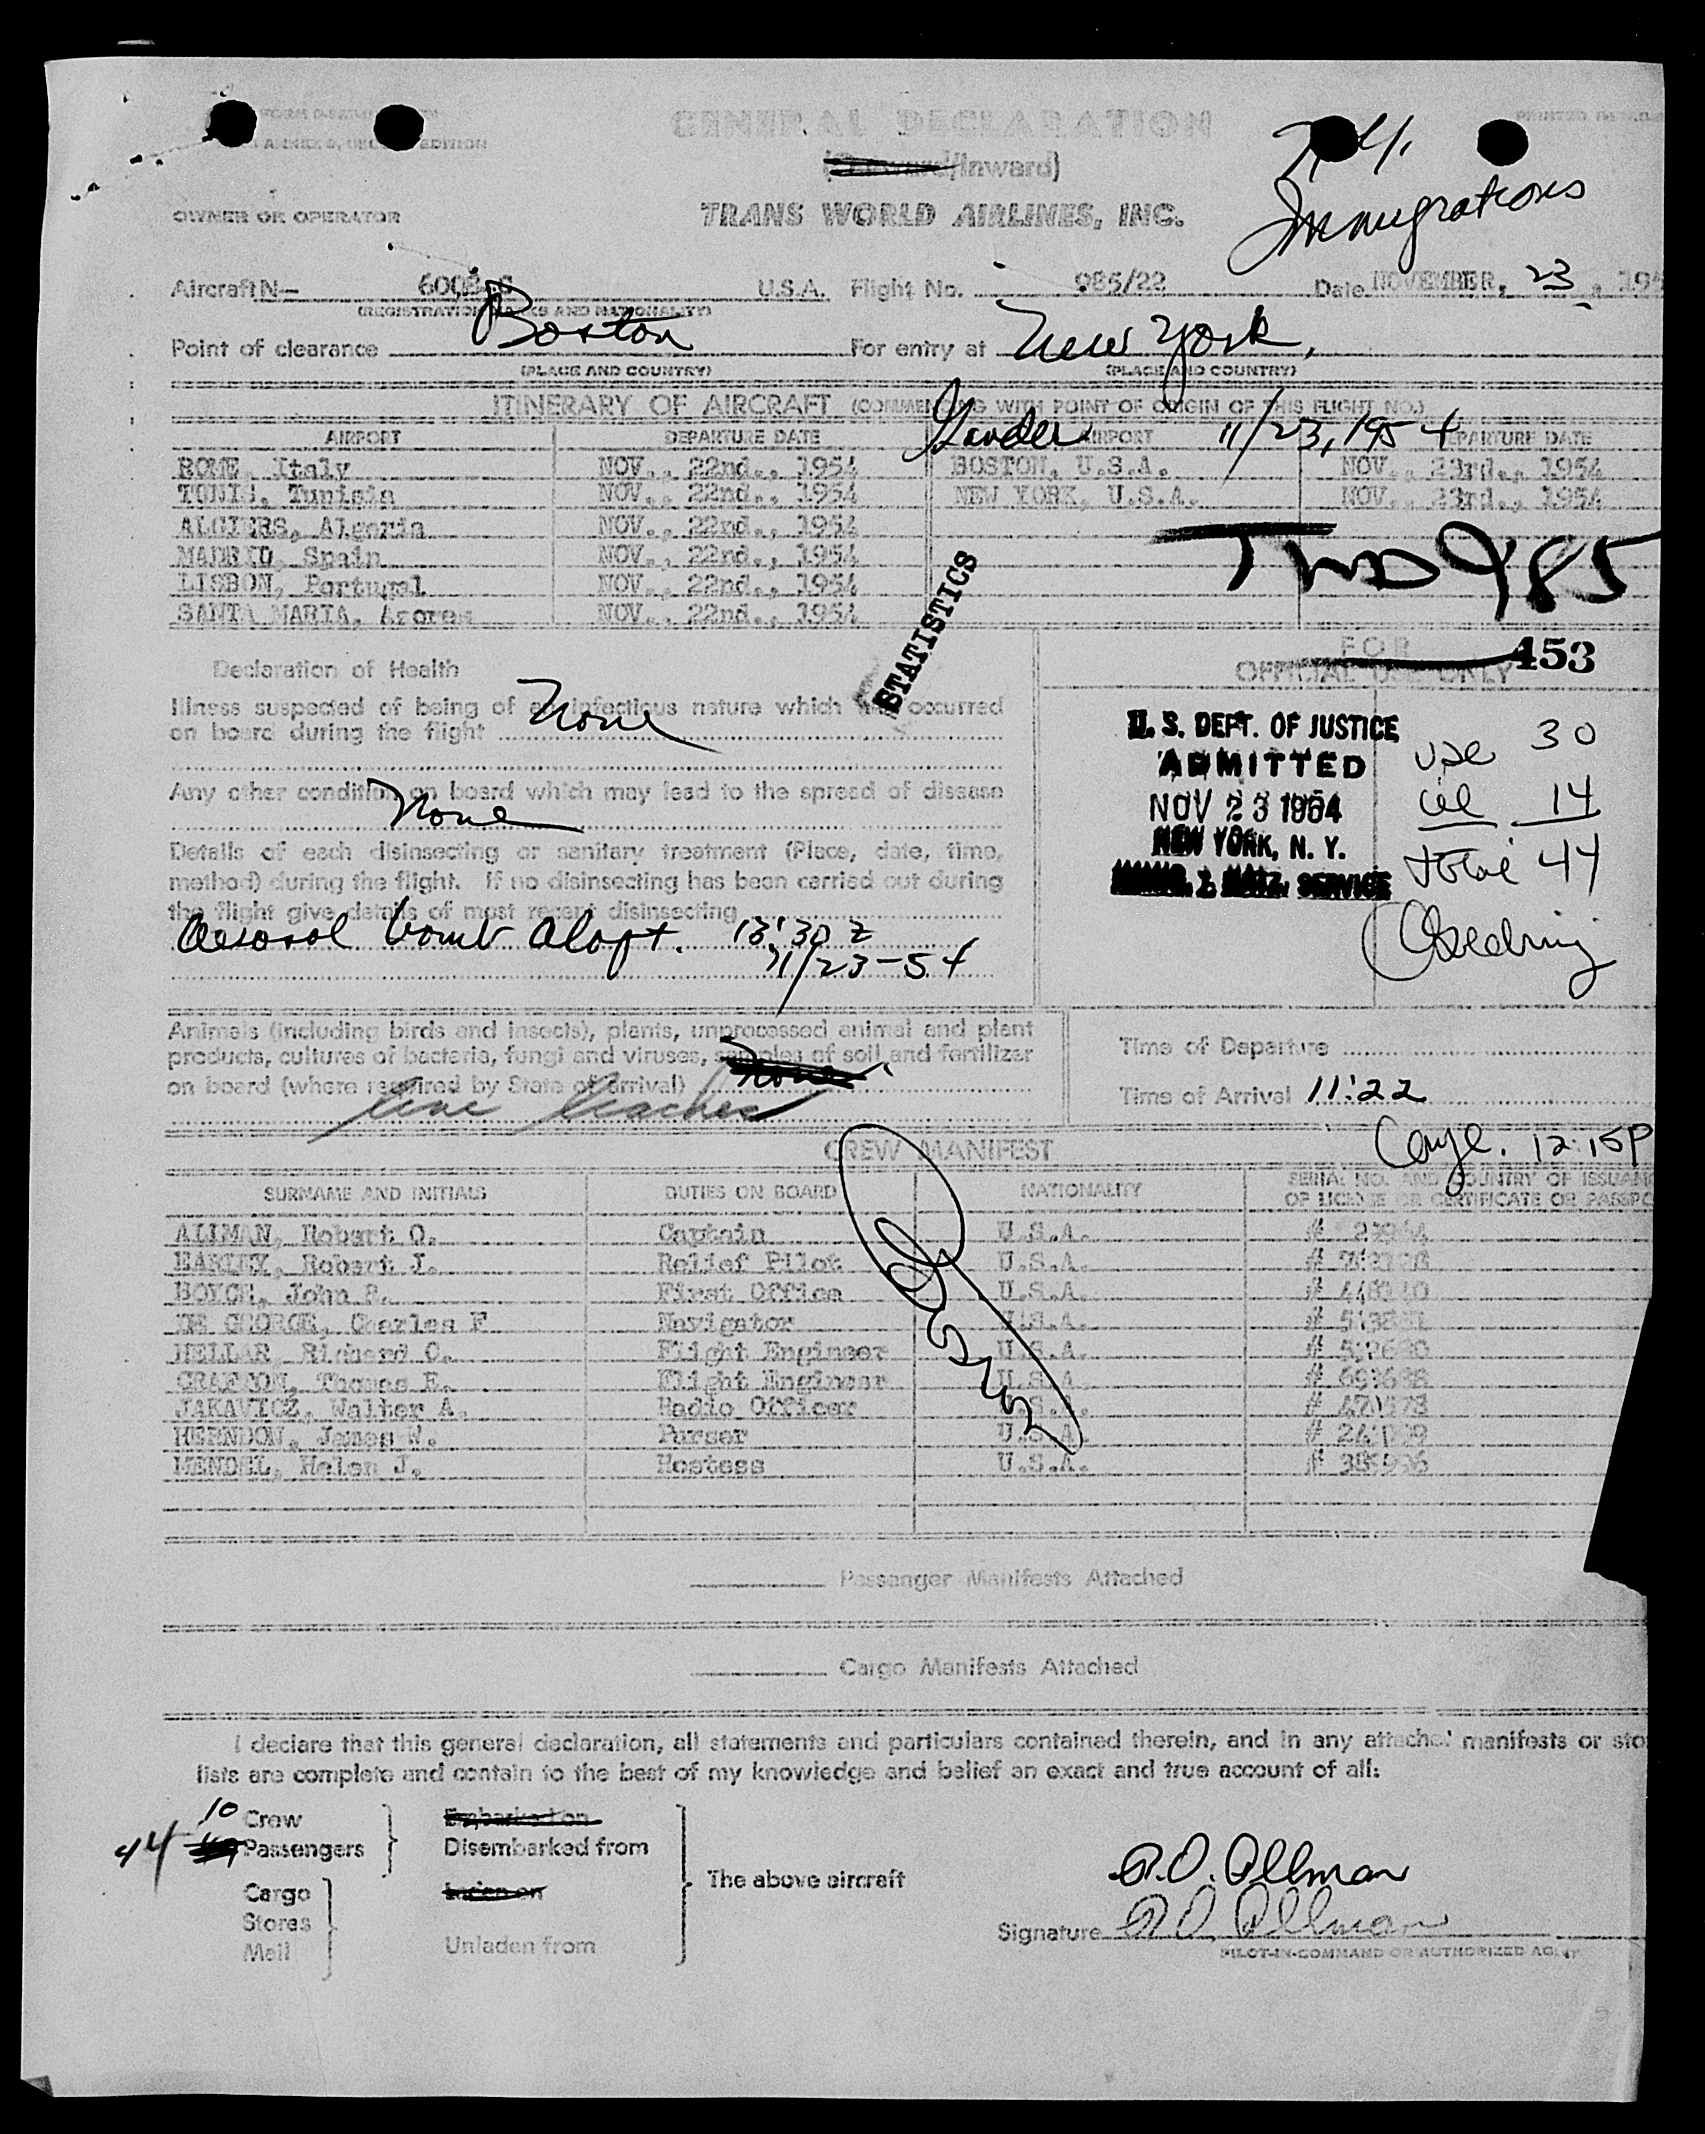 GENERAL DECLARATION
/Inward)
N.Y.
Immigrations
OWNER OR OPERATOR
TRANS WORLD AIRLINES, INC.
Aircraft N— U.S.A. Flight No. 985/22 Date NOVEMBER, 23, 195
(REGISTRATION MARKS AND NATIONALITY)
Point of clearance Boston For entry at New York,
(PLACE AND COUNTRY) (PLACE AND COUNTRY)
ITINERARY OF AIRCRAFT (COMMENCING WITH POINT OF ORIGIN OF THIS FLIGHT NO.)
Gander 11/23, 1954
AIRPORT DEPARTURE DATE AIRPORT DEPARTURE DATE
ROME, Italy NOV., 22nd., 1954 BOSTON, U.S.A. NOV., 23rd., 1954
TUNIS, Tunisia NOV., 22nd., 1954 NEW YORK, U.S.A. NOV., 23rd., 1954
ALGIERS, Algeria NOV., 22nd., 1954
MADRID, Spain NOV., 22nd., 1954
LISBON, Portugal NOV., 22nd., 1954
SANTA MARIA, Azores NOV., 22nd., 1954
985
STATISTICS
FOR
OFFICIAL USE ONLY
453
Declaration of Health
Illness suspected of being of an infectious nature which has occurred
on board during the flight None
Any other condition on board which may lead to the spread of disease
None
Details of each disinsecting or sanitary treatment (Place, date, time,
method) during the flight. If no disinsecting has been carried out during
the flight give details of most recent disinsecting
Aerosol bomb 13:30 Z
11/23-54
U. S. DEPT. OF JUSTICE
ADMITTED
NOV 23 1954
NEW YORK, N. Y.
IMMIG. & NATZ. SERVICE
usc 30
14
total 44
Animals (including birds and insects), plants, unprocessed animal and plant
products, cultures of bacteria, fungi and viruses, samples of soil and fertilizer
on board (where required by State of arrival) None
live leaches
Time of Departure
Time of Arrival 11:22
12:15P
CREW MANIFEST
SURNAME AND INITIALS DUTIES ON BOARD NATIONALITY SERIAL NO. AND COUNTRY OF ISSUANC
OF LICENSE OR CERTIFICATE OR PASSPO
ALLMAN, Robert O. Captain U.S.A. #
Robert J. Relief Pilot U.S.A. #
BOYCE, John P. First Office U.S.A. #
DE GEORGE, Charles F Navigator U.S.A. #
HELLAR, Richard C. Flight Engineer U.S.A. #
GRAFTON, Thomas E. Flight Engineer U.S.A. #
JAKAVICZ, Walter A. Radio Officer U.S.A. #
HERNDON, James W. Purser U.S.A. #
MENDEL, Helen J. Hostess U.S.A. #
Passenger Manifests Attached
Cargo Manifests Attached
I declare that this general declaration, all statements and particulars contained therein, and in any attached manifests or sto
lists are complete and contain to the best of my knowledge and belief an exact and true account of all:
10 Crew Embarked on
44 Passengers Disembarked from
The above aircraft
Cargo Laden on
Stores
Mail Unladen from
R.O. Allman
Signature R.O. Allman
PILOT-IN-COMMAND OR AUTHORIZED AGENT